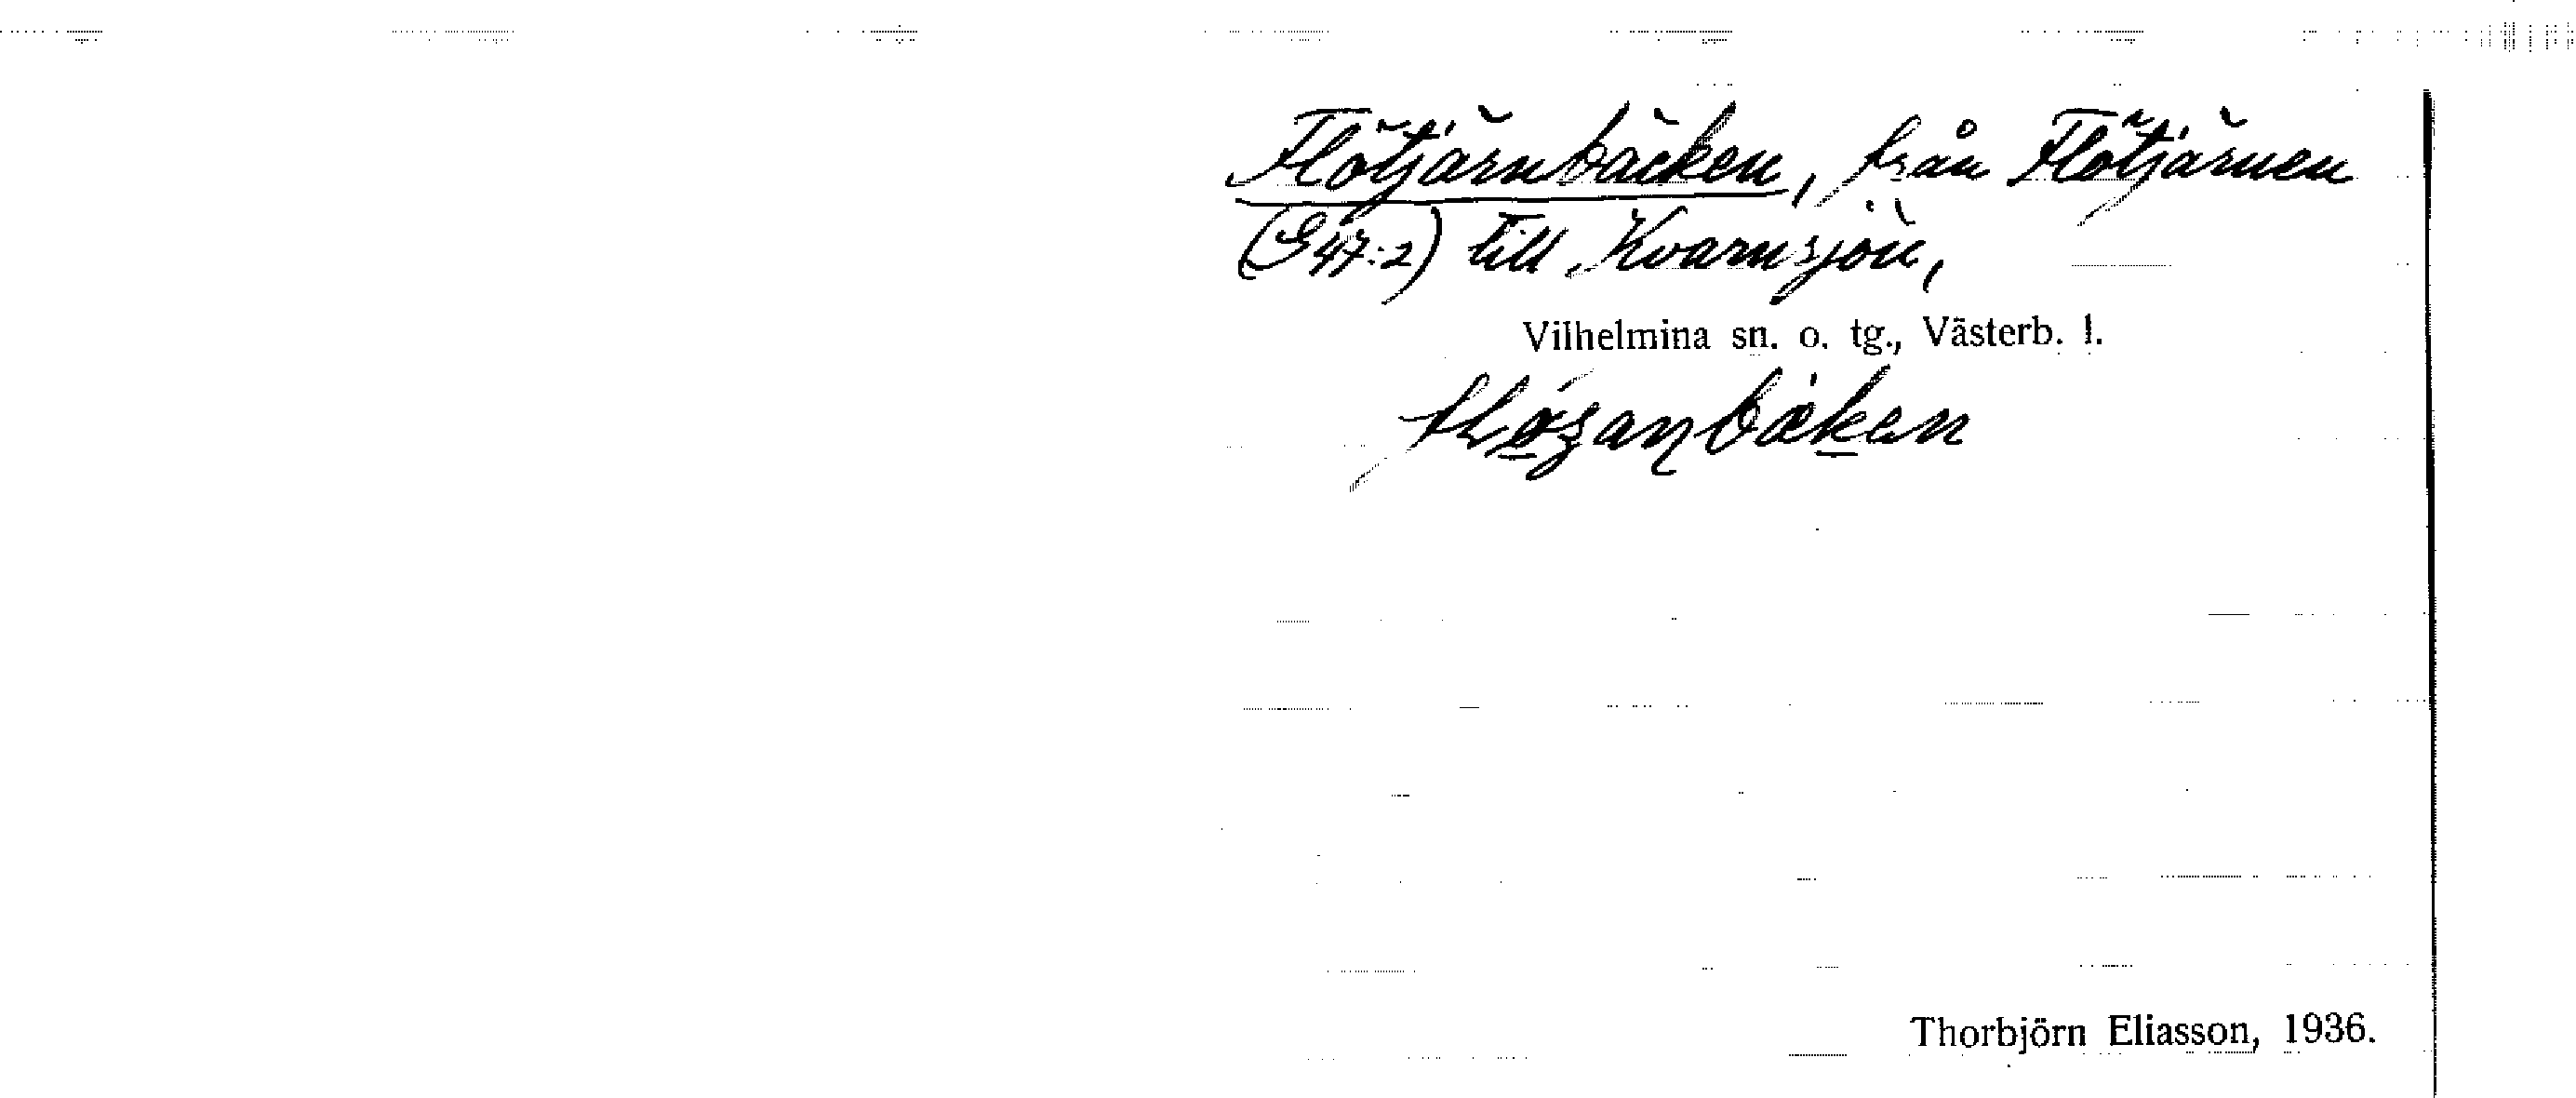 Flötjärnbäcken, från Flötjärnen
(G47:2) till Kvarnsjön,
Vilhelmina sn. o. tg., Västerb. l.
Thorbjörn Eliasson, 1936.